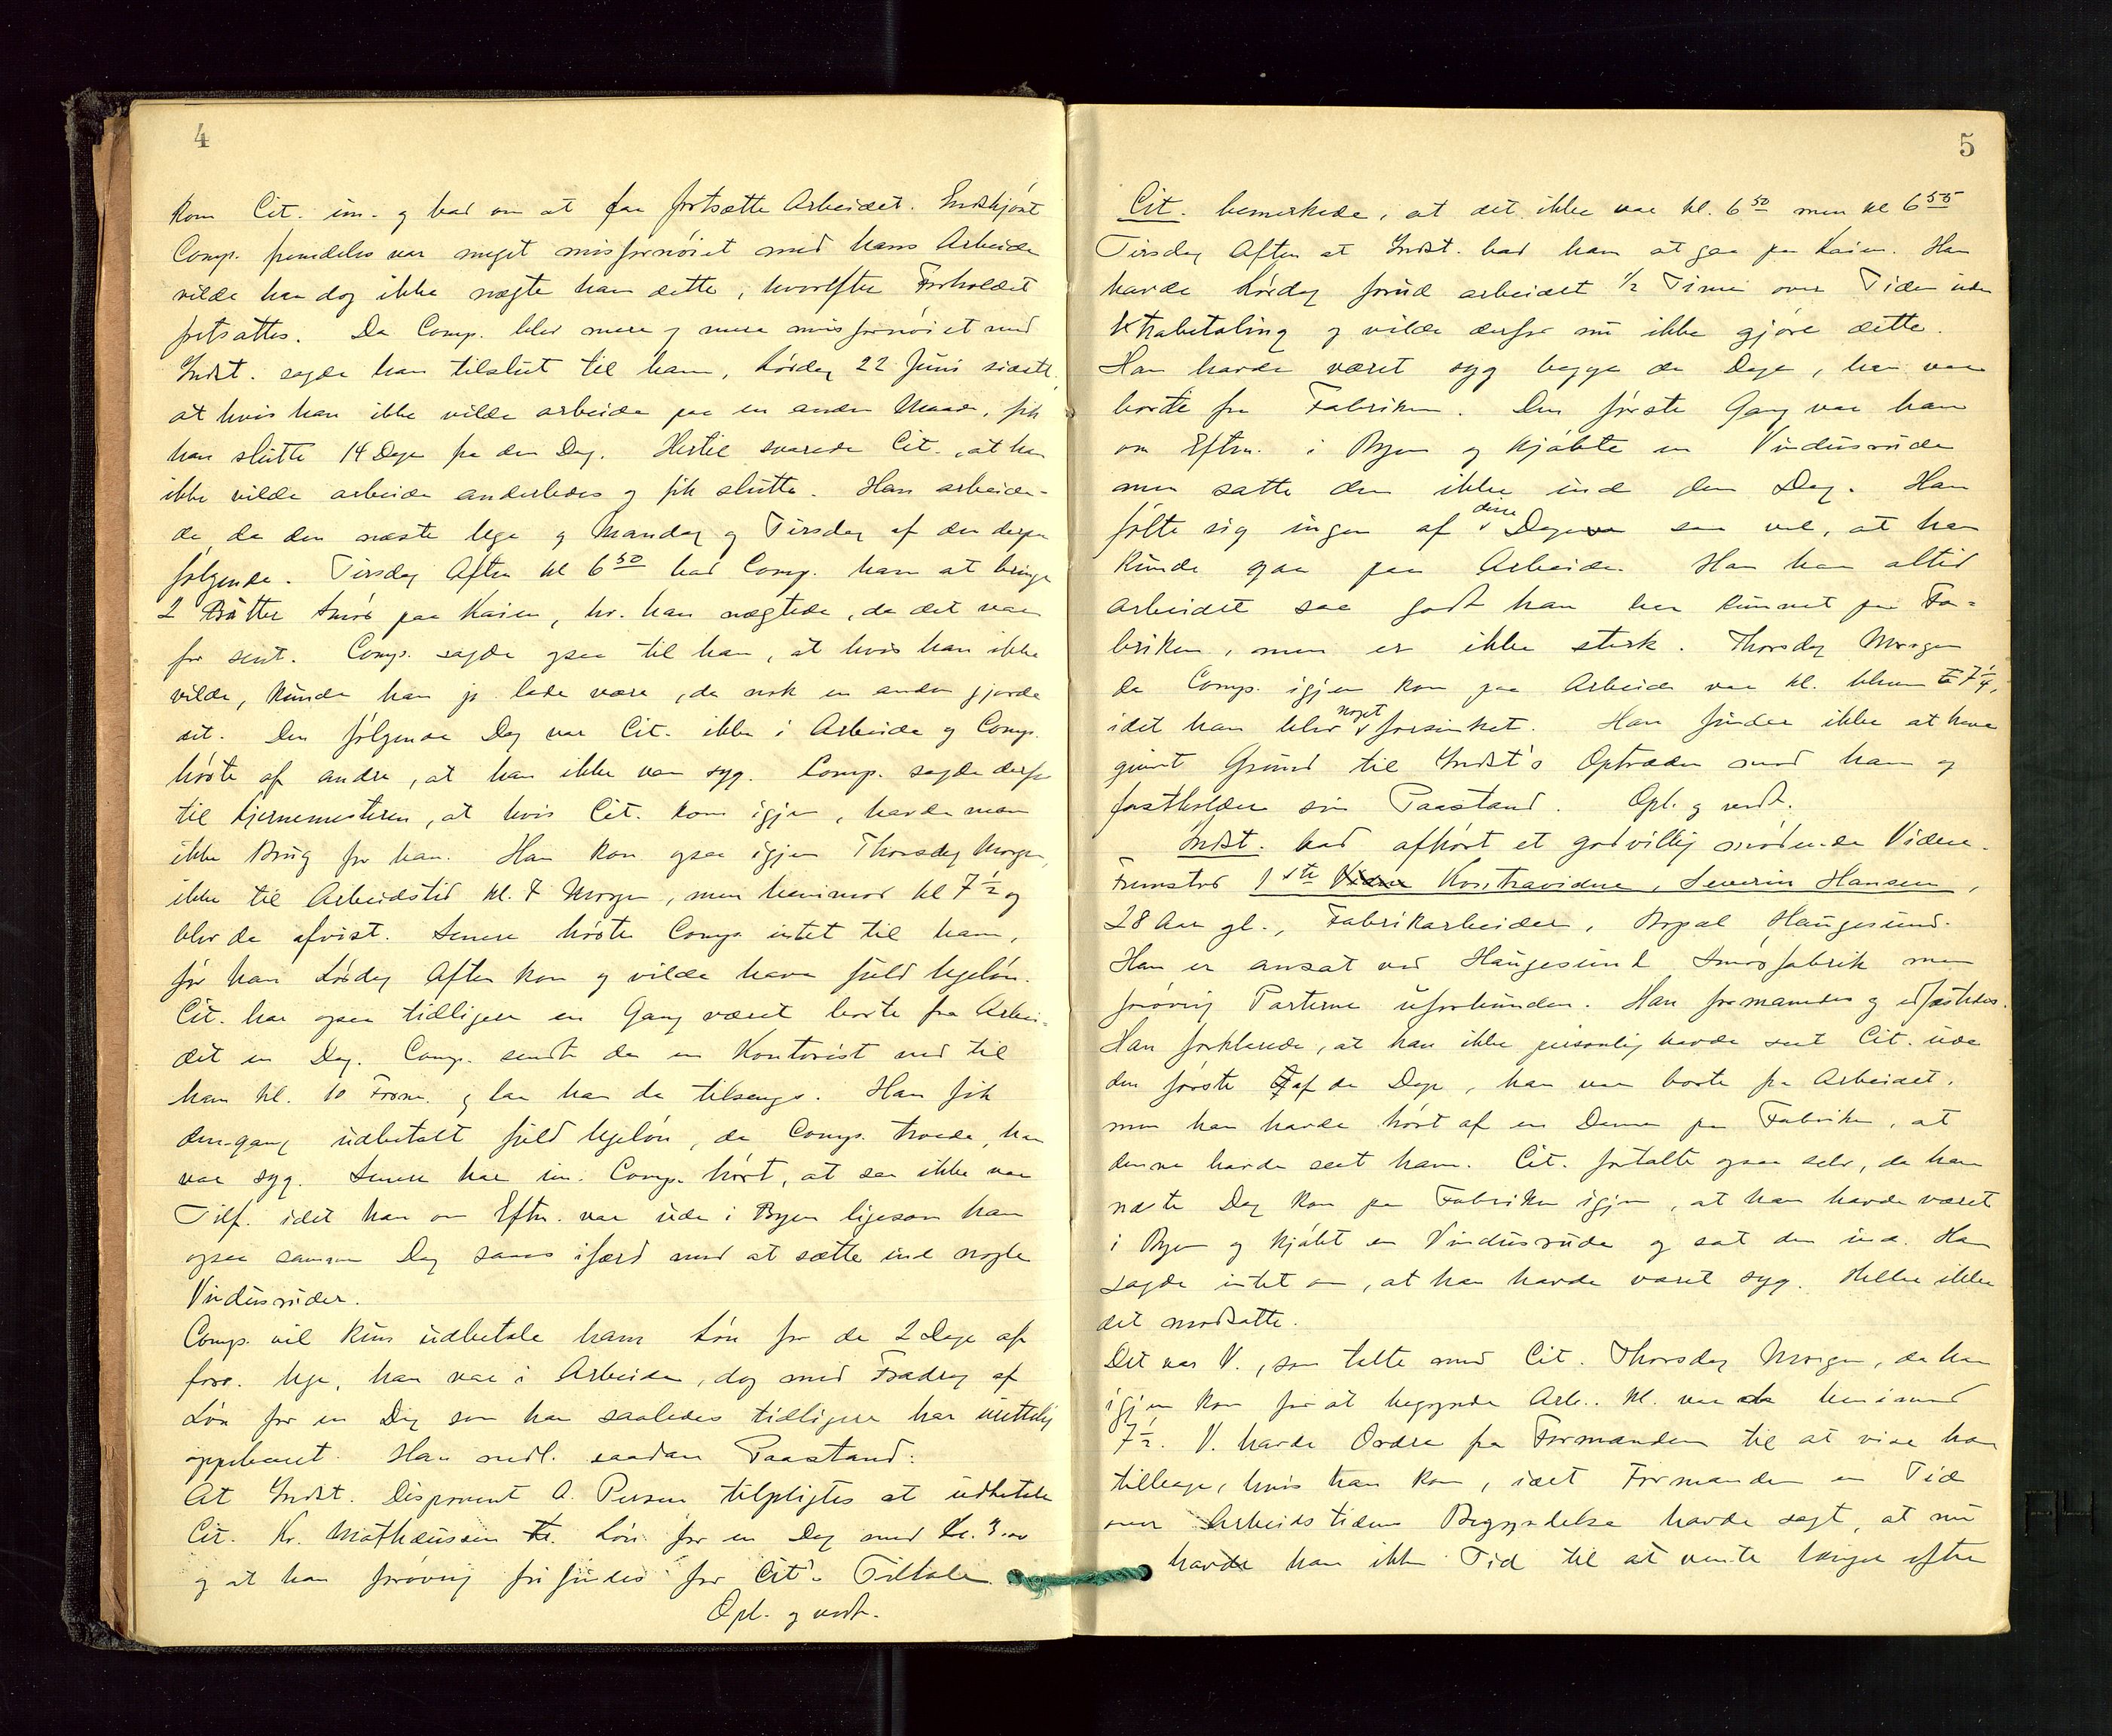 4
kom Cit. im. og bad om at faa fortsætte Arbeidet. Endskjønt
Comp. fremdeles var meget misfornøiet med hans Arbeide
vilde han dog ikke nægte ham dette, hvorefter Forholdet
fortsattes. Da Comp. blev mere og mere misfornøiet med
Indst. sagde han tilslut til ham, Lørdag 22 Juni sidstl.
at hvis han ikke vilde arbeide paa en anden Maade, fik
han slutte 14 Dage fra den Dag. Hertil svarede Cit., at han
ikke vilde arbeide anderledes og fik slutte. Han arbeide-
de da den næste Uge og Mandag og Tirsdag af den derpaa
følgende. Tirsdag Aften kl 6 50 bad Comp. ham at bringe
2 Bøtter Smør paa Kaien, hv. han nægtede, da det var
for sent. Comp. sagde ogsaa til ham, at hvis han ikke
vilde, kunde han jo lade være, da nok en anden gjorde
det. Den følgende Dag var Cit. ikke i Arbeide og Comp.
hørte af andre, at han ikke var syg. Comp. sagde derfor
til Kjernemesteren, at hvis Cit. kom igjen, havde man
ikke Brug for ham. Han kom ogsaa igjen Thorsdag Morgen,
ikke til Arbeidstid kl. 7 Morgen, men henimod kl 7½ og
blev da afvist. Senere hørte Comp. intet til ham,
før han Lørdag Aften kom og vilde have fuld Ugeløn.
Cit. har ogsaa tidligere en Gang været borte fra Arbei-
det en Dag. Comp. sendte da en Kontorist ned til
ham kl. 10 Form. og laa han da tilsengs. Han fik
dengang udbetalt fuld Ugeløn, da Comp. troede, han
var syg. Senere har im. Comp. hørt, at saa ikke var
Tilf. idet han om Eftm. var ude i Byen ligesom han
ogsaa samme Dag saaes ifærd med at sætte ind nogle
Vindusruder.
Comp. vil kun udbetale ham Løn for de 2 Dage af
forr. Uge, han var i Arbeide, dog med Fradrag af
Løn for en Dag som han saaledes tidligere har urettelig
oppebaaret. Han nedl. saadan Paastand:
At Indst. Disponent A. Person tilpligtes at udbetale
Cit. Kr. Mathæussen Løn for en Dag med Kr. 3.00
og at han forøvrig frifindes for Cit's Tiltale.
Opl. og vedt.
5
Cit. bemerkede, at det ikke var kl. 6 50 men kl 6 55
Tirsdag Aften at Indst. bad ham at gaa paa Kaien. Han
havde Lørdag forud arbeidet ½ Time over Tiden uden
Xtrabetaling og vilde derfor nu ikke gjøre dette.
Han havde været syg begge de Dage, han var
borte fra Fabriken. Den første Gang var han
om Eftm. i Byen og kjøbte en Vindusrude
men satte den ikke ind den Dag. Han
følte sig ingen af disse Dage saa vel, at han
kunde gaa paa Arbeide. Han har altid
arbeidet saa godt han har kunnet paa Fa-
briken, men er ikke sterk. Thorsdag Morgen
da Comp. igjen kom paa Arbeide var kl. bleven 7¼,
idet han blev noget forsinket. Han finder ikke at have
givet Grund til Indst's Optræden mod ham og
fastholder sin Paastand. Opl. og vedt.
Indst. bad afhørt et godvillig mødende Vidne.
Fremstod 1ste Kontravidne, Severin Hansen,
28 Aar gl., Fabrikarbeider, Bopæl Haugesund.
Han er ansat ved Haugesund Smørfabrik men
forøvrig Parterne uforbunden. Han formanedes og edfæstedes.
Han forklarede, at han ikke personlig havde seet Cit. ude
den første af de Dage, han var borte fra Arbeidet,
men han havde hørt af en Dame paa Fabriken, at
denne havde seet ham. Cit. fortalte ogsaa selv, da han
næste Dag kom paa Fabriken igjen, at han havde været
i Byen og kjøbt en Vindusrude og sat den ind. Han
sagde intet om, at han havde været syg. Heller ikke
det modsatte.
Det var V., som talte med Cit. Thorsdag Morgen, da han
igjen kom for at begynde Arb.. Kl. var henimod
7½. V. havde Ordre fra Formanden til at vise ham
tilbage, hvis han kom, idet Formanden en Tid
over Arbeidstidens Begyndelse havde sagt, at nu
havde han ikke Tid til at vente længer efter